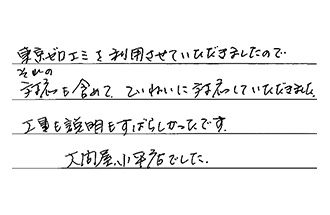 東京ゼロエミを利用させていただきましたので
その
対応も含めて、ていねいに対応していただきました
工事も説明もすばらしかったです。
大問屋小平店でした。